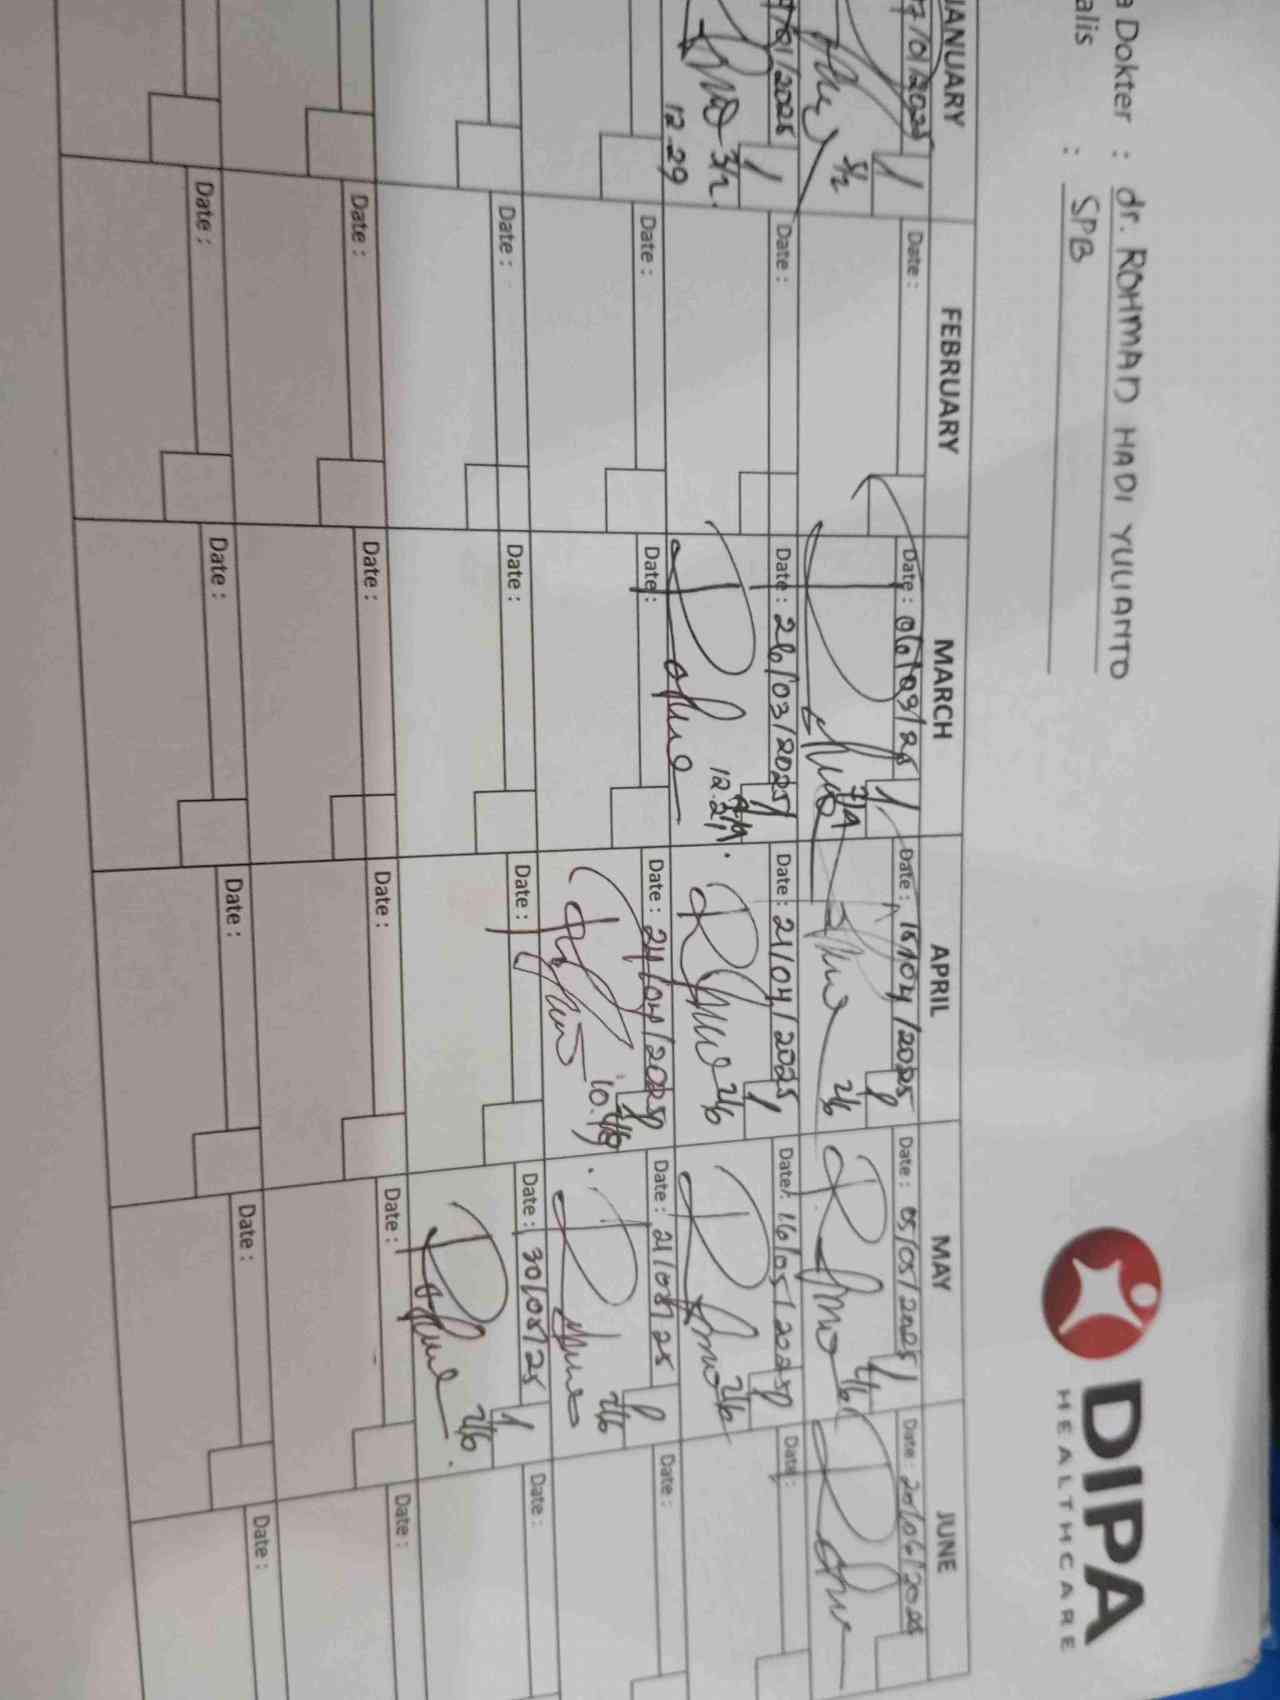 a Dokter : dr. ROHMAD HADI YULIANTO
alis : SPB
DIPA
HEALTHCARE
JANUARY FEBRUARY MARCH APRIL MAY JUNE
7/01/2025 1 Date : Date : 06/03/25 1 Date : 15/04/2025 Date : 05/05/2025 1 Date : 20/06/2025
3/2 2/6 2/6
/01/2025 1 Date : Date : 26/03/2025 1 Date : 21/04/2025 1 Date : 16/05/2025 Date :
3/2. 2/6 2/6
12.29 12.27
Date : Date : Date : 24/04/2025 Date : 21/05/25 Date :
2/6
Date : Date : Date : Date : 30/05/25 1 Date :
2/6
Date : Date : Date : Date : Date :
Date : Date : Date : Date : Date :